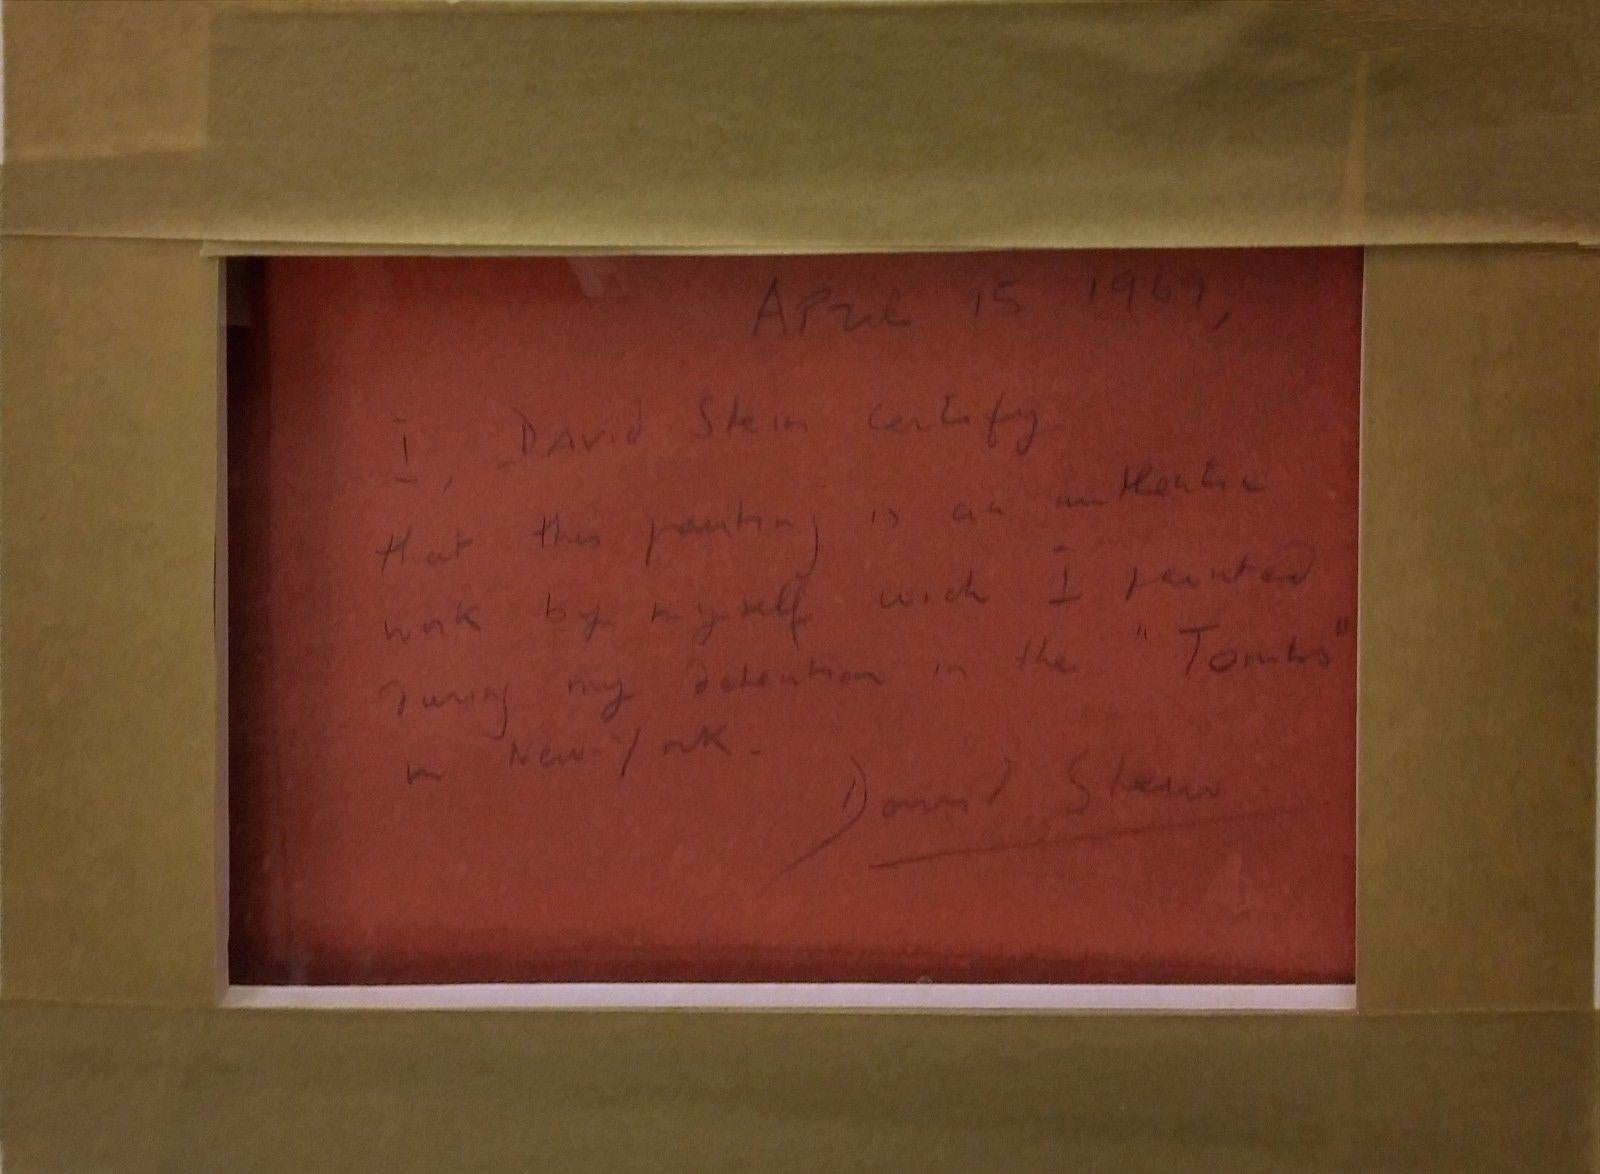 April 15 1969,
I, David Stein certify
that this painting is an authentic
work by myself wich I painted
during my detention in the "Tombs"
in New-York.
David Stein